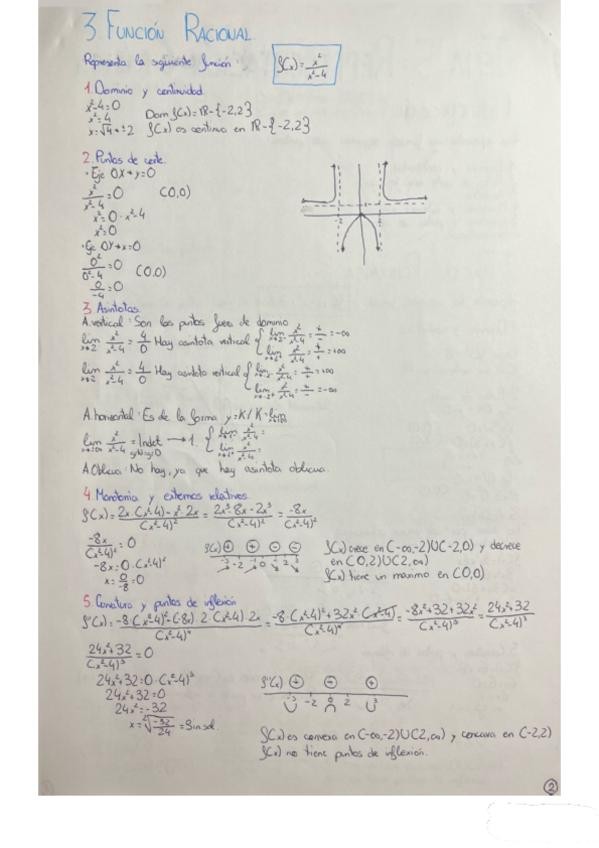 3 FUNCIÓN RACIONAL
Representa la siguiente función: f(x) = x²/x²-4
1. Dominio y continuidad
x²-4=0
x²=4 Dom f(x)=ℝ-{-2,2}
x=√4=±2 f(x) es continua en ℝ-{-2,2}
2. Puntos de corte.
· Eje OX→y=0
x²/x²-4=0 (0,0)
x²=0·x²-4
x²=0
· Eje OY→x=0
0²/0²-4=0 (0,0)
0/-4=0
-2 2
3. Asíntotas.
A. vertical: Son los puntos fuera de dominio
lim x²/x²-4 = 4/0 Hay asíntota vertical
lim x²/x²-4 = 4/0 Hay asíntota vertical
A. horizontal: Es de la forma y=K/K=lim
lim x²/x²-4 = Indet → 1.
A. Oblicua: No hay, ya que hay asíntota oblicua.
4. Monotonía y extremos relativos.
f'(x)=2x·(x²-4)-x²·2x/(x²-4)² = 2x³-8x-2x³/(x²-4)² = -8x/(x²-4)²
-8x/(x²-4)²=0
-8x=0·(x²-4)²
x=0/-8=0
f'(x) + + - -
-3 -2 -1 0 1 2 3
f(x) crece en (-∞,-2)U(-2,0) y decrece
en (0,2)U(2,∞)
f(x) tiene un máximo en (0,0)
5. Curvatura y puntos de inflexión
f''(x)=-8·(x²-4)²-(-8x)·2·(x²-4)·2x/(x²-4)⁴ = -8·(x²-4)²+32x²·(x²-4)/(x²-4)⁴ = -8x²+32+32x²/(x²-4)³ = 24x²+32/(x²-4)³
24x²+32/(x²-4)³=0
24x²+32=0·(x²-4)³
24x²+32=0
24x²=-32
x=²√-32/24=Sin sol.
f''(x) + - +
-3 -2 0 2 3
f(x) es convexa en (-∞,-2)U(2,∞) y concava en (-2,2)
f(x) no tiene puntos de inflexión.
2